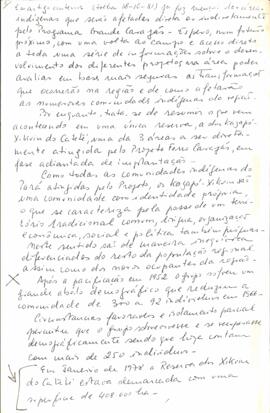 Em artigo anterior (Folha 18-10-81) já fiz menção às áreas
indígenas que serão afetadas direta ou indiretamente
pelo Programa Grande Carajás. Espero, num futuro
próximo, com uma volta ao campo e acesso direto
a toda uma série de informações sobre o desen-
volvimento dos diferentes projetos na área poder
avaliar em base mais segura as transformações
que ocorrerão na região e de como afetarão
as numerosas comunidades indígenas da região.
Por enquanto, trata-se de resumir o que vem
acontecendo em uma única reserva, a dos Kayapó-
Xikrin do Cateté, uma das 3 áreas a ser direta-
mente atingida pelo Projeto Ferro Carajás, em
fase adiantada de implantação.
Como todas as comunidades indígenas do
Pará atingidas pelo Projeto, os Kayapó-Xikrin são
uma comunidade com identidade própria,
o que se caracteriza pela posse de um terri-
tório tradicional comum, língua, organização
econômica, social e política também próprias.
Neste sentido são de maneira inequívoca
diferenciados do resto da população regional
assim como dos novos ocupantes da região.
Após a pacificação em 1952 o grupo sofreu um
grande abalo demográfico que reduziu a
comunidade de 300 a 92 indivíduos em 1966.
Circunstâncias favoráveis e isolamento parcial
permitiu que o grupo sobrevivesse e se recuperasse
demograficamente sendo que hoje contam
com mais de 250 indivíduos.
Em Janeiro de 1978 a Reserva dos Xikrin
do Cateté estava demarcada com uma
superfície de 408.000 ha.